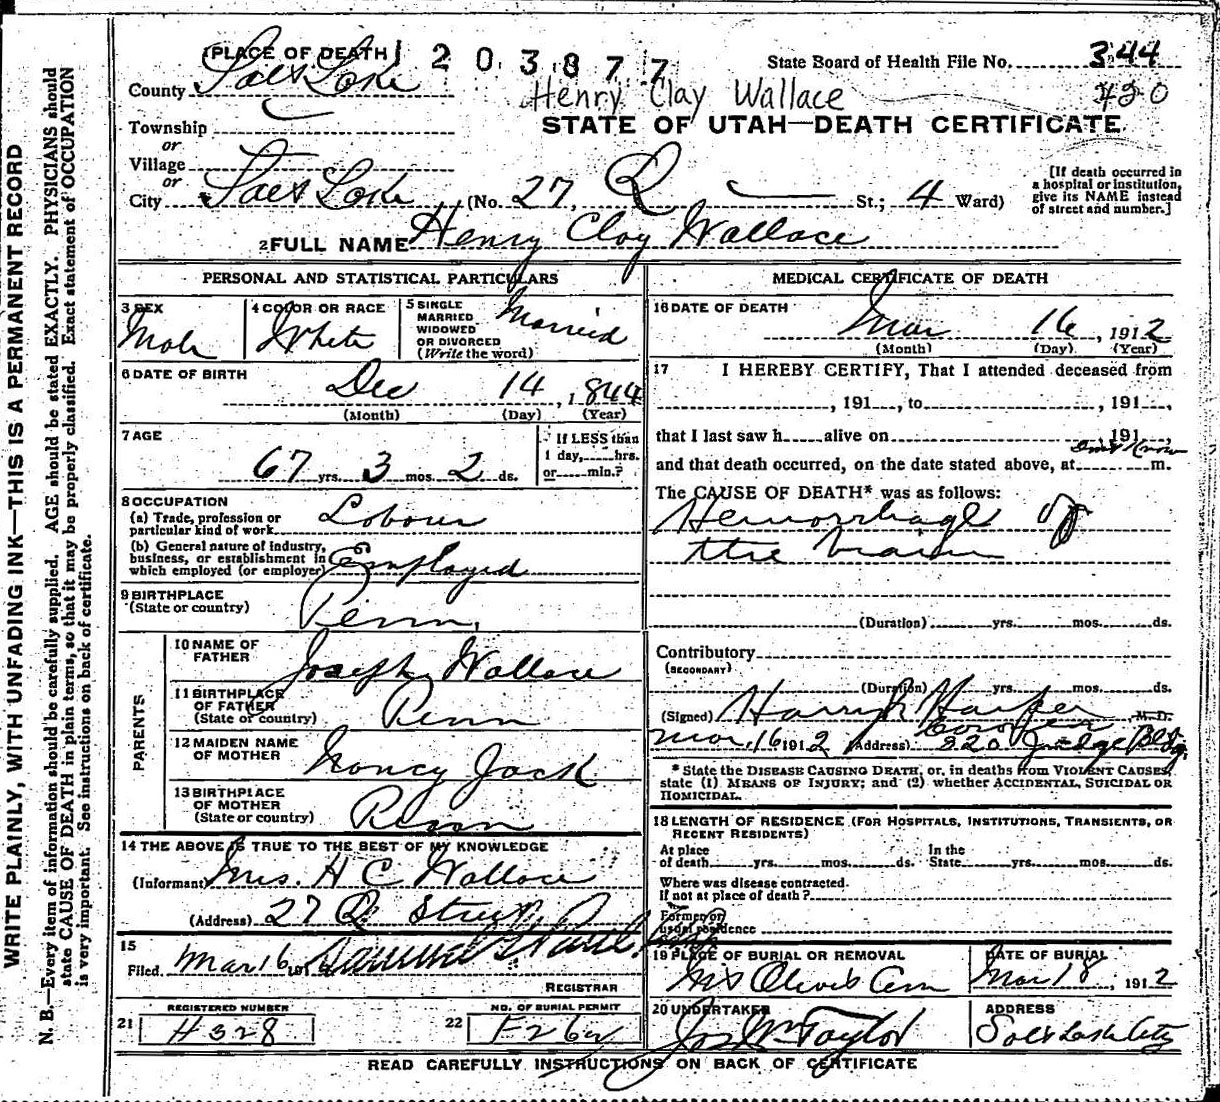 WRITE PLAINLY, WITH UNFADING INK—THIS IS A PERMANENT RECORD
N. B.—Every item of information should be carefully supplied. AGE should be stated EXACTLY. PHYSICIANS should
state CAUSE OF DEATH in plain terms, so that it may be properly classified. Exact statement of OCCUPATION
is very important. See instructions on back of certificate.
(PLACE OF DEATH) 1203877
State Board of Health File No. 344
County Salt Lake
Henry Clay Wallace
430
STATE OF UTAH—DEATH CERTIFICATE
Township
or
Village
or
City Salt Lake (No. 27, Q St.; 4 Ward)
[If death occurred in
a hospital or institution,
give its NAME instead
of street and number.]
2 FULL NAME Henry Clay Wallace
PERSONAL AND STATISTICAL PARTICULARS
3 SEX
Male
4 COLOR OR RACE
White
5 SINGLE
MARRIED
WIDOWED
OR DIVORCED
(Write the word)
Married
6 DATE OF BIRTH
Dec 14, 1844
(Month) (Day) (Year)
7 AGE
67 yrs. 3 mos. 2 ds.
If LESS than
1 day, hrs.
or min.?
8 OCCUPATION
(a) Trade, profession or
particular kind of work Labour
(b) General nature of industry,
business, or establishment in
which employed (or employer) Employed
9 BIRTHPLACE
(State or country) Penn.
PARENTS
10 NAME OF
FATHER Joseph Wallace
11 BIRTHPLACE
OF FATHER
(State or country) Penn
12 MAIDEN NAME
OF MOTHER Nancy Jack
13 BIRTHPLACE
OF MOTHER
(State or country) Penn
14 THE ABOVE IS TRUE TO THE BEST OF MY KNOWLEDGE
(Informant) Mrs. H C Wallace
(Address) 27 Q Street
15
Filed Mar 16, 191
REGISTRAR
REGISTERED NUMBER
21 H328
NO. OF BURIAL PERMIT
22
MEDICAL CERTIFICATE OF DEATH
16 DATE OF DEATH
Mar 16, 1912
(Month) (Day) (Year)
17 I HEREBY CERTIFY, That I attended deceased from
, 191 , to , 191 ,
that I last saw h alive on 191
and that death occurred, on the date stated above, at dont know m.
The CAUSE OF DEATH* was as follows:
Hemorrhage of
the brain
(Duration) yrs. mos. ds.
Contributory
(SECONDARY)
(Duration) yrs. mos. ds.
(Signed) Harry Harper M. D.
Coroner
Mar. 16 1912 (Address) 320 Judge Bldg.
* State the DISEASE CAUSING DEATH, or, in deaths from VIOLENT CAUSES,
state (1) MEANS OF INJURY; and (2) whether ACCIDENTAL, SUICIDAL OR
HOMICIDAL.
18 LENGTH OF RESIDENCE (FOR HOSPITALS, INSTITUTIONS, TRANSIENTS, OR
RECENT RESIDENTS)
At place
of death yrs. mos. ds.
In the
State yrs. mos. ds.
Where was disease contracted.
If not at place of death?
Former or
usual residence
19 PLACE OF BURIAL OR REMOVAL
Mt Olivet Cem
DATE OF BURIAL
Mar 18, 1912
20 UNDERTAKER
Jos Wm Taylor
ADDRESS
Salt Lake City
READ CAREFULLY INSTRUCTIONS ON BACK OF CERTIFICATE